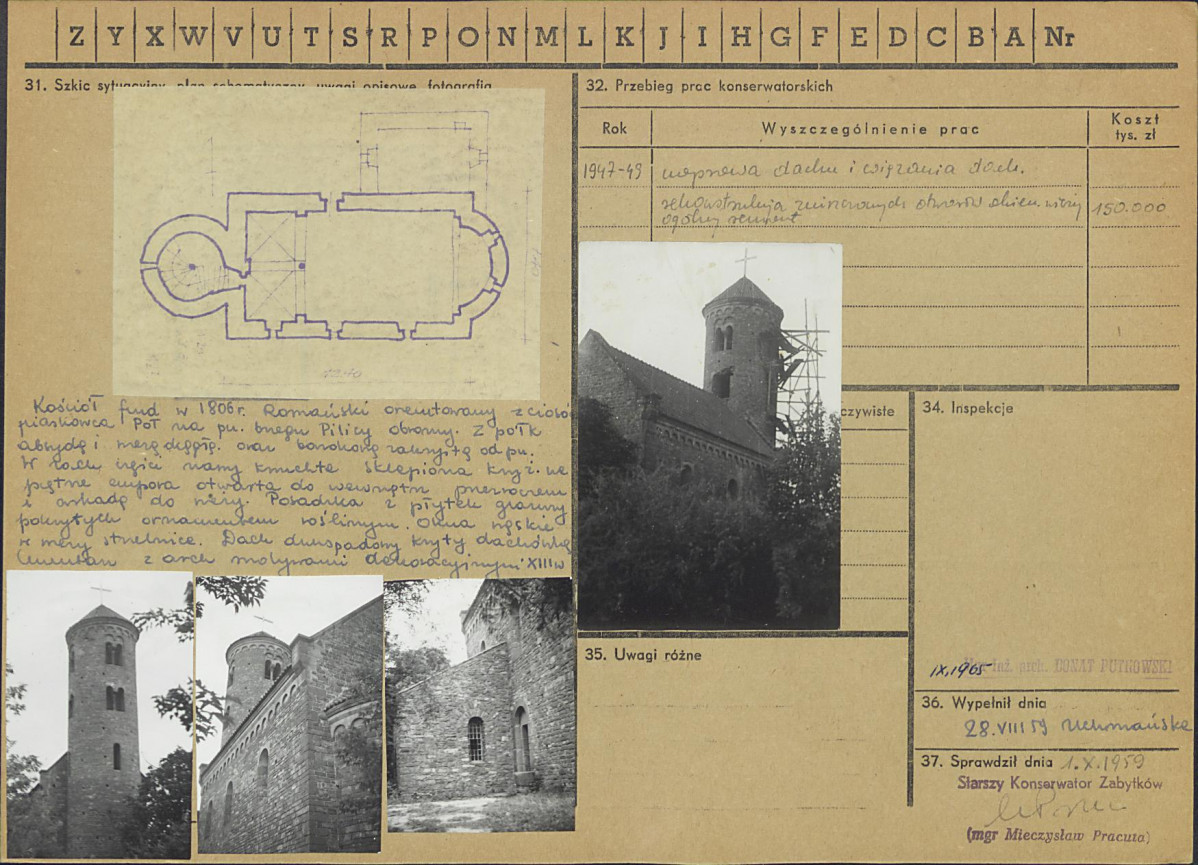 Z Y X W V U T S R P O N M L K J I H G F E D C B A Nr
31. Szkic sytuacyjny, plan schematyczny, uwagi opisowe, fotografia
Kościół fund w 1806r. Romański orientowany z ciosów
piaskowca Poł na pn. brzegu Pilicy obronny. Z półk
absydą i wieżą okrągłą oraz barokową zakrystią od pn.
W zach części nawy kruchta sklepiona krzyż. na
piętrze empora otwarta do wewnątrz przezroczem
i arkadą do wieży. Posadzka z płytek
pokrytych ornamentem roślinnym. Okna wąskie
w wieży strzelnice. Dach dwuspadowy kryty dachówką
Cmentarz z arch motywami dekoracyjnymi XIII w
32. Przebieg prac konserwatorskich
Rok
Wyszczególnienie prac
Koszt
tys. zł
1947-49 naprawa dachu i wiązania dach.
rekonstrukcja zniszczonych otworów okien. wieży
ogólny remont
150.000
czywiste
34. Inspekcje
IX.1965
Mgr inż. arch. DONAT PUTKOWSKI
35. Uwagi różne
36. Wypełnił dnia
28.VIII 59
37. Sprawdził dnia 1.X.1959
Starszy Konserwator Zabytków
(mgr Mieczysław Pracuta)